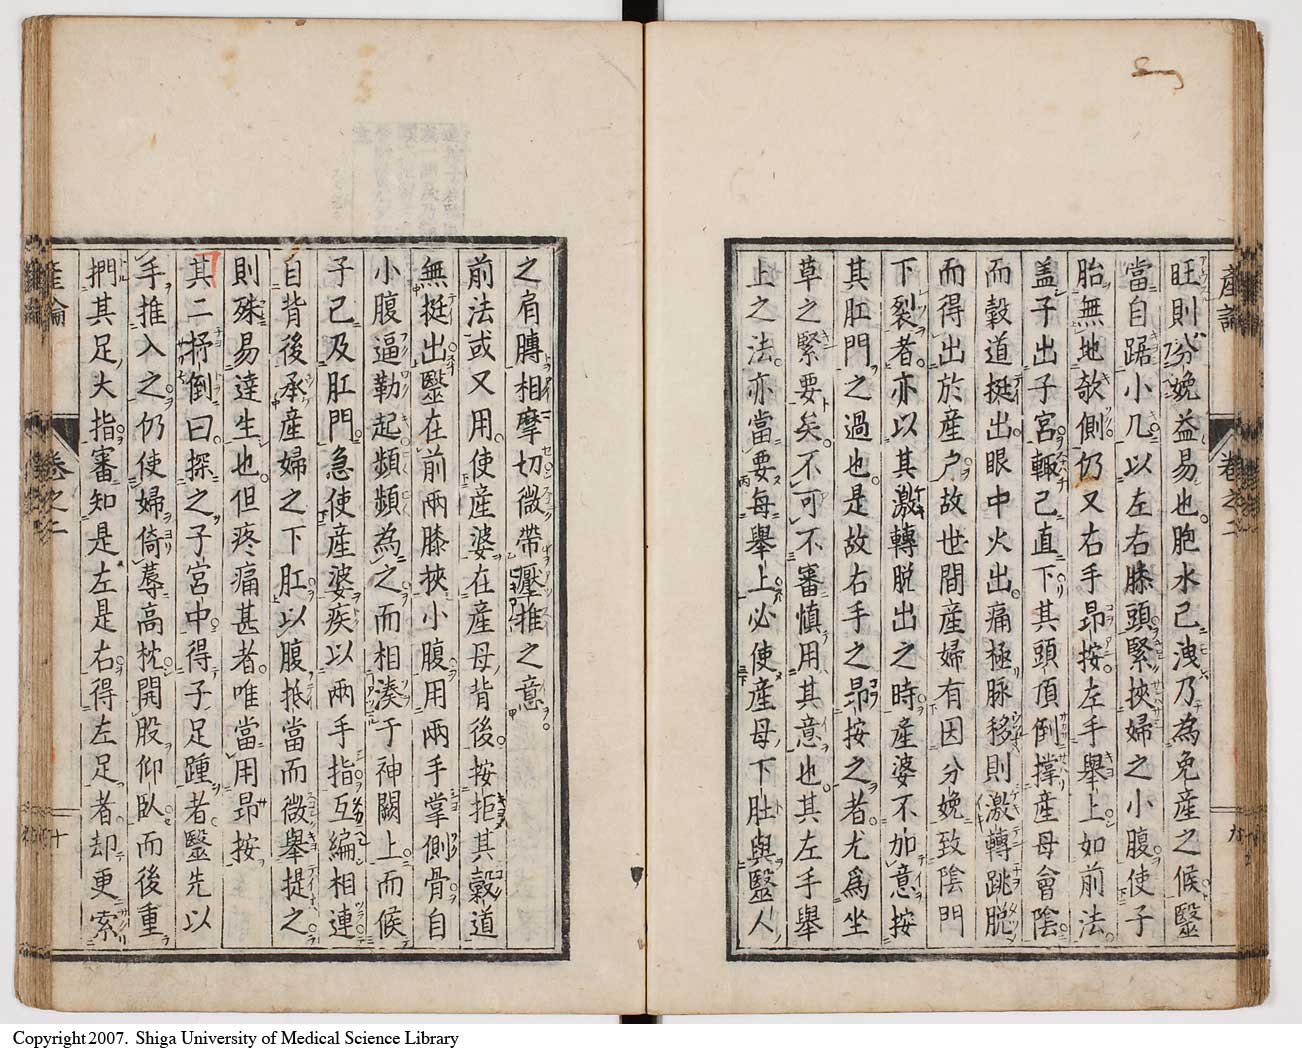 旺則分娩益易也胞水已洩乃為免產之候毉
當自踞小几以左右膝頭緊挾婦之小腹使子
胎無地欹側仍又右手昻按左手舉上如前法
盖子出子宮輙已直下其頭頂倒撑產母會陰
而榖道挺出眼中火出痛極脉移則激轉跳脱
而得出於產户故世間產婦有因分娩致陰門
下裂者亦以其激轉脱出之時產婆不加意按
其肛門之過也是故右手之昻按之者尤爲坐
草之緊要矣不可不審慎用其意也其左手舉
上之法亦當要每舉上必使產母下肚與毉人
之肩膊相摩切微帶壓推之意
前法或又用使產婆在產母背後按拒其穀道
無挺出毉在前兩膝挾小腹用兩手掌側骨自
小腹逼勒起頻頻為之而相湊于神闕上而候
子已及肛門急使產婆疾以兩手指互編相連
自背後承產婦之下肛以腹抵當而微舉提之
則殊易達生也但疼痛甚者唯當用昻按
其二抒倒曰探之子宮中得子足踵者毉先以
手推入之仍使婦倚蓐高枕開股仰臥而後重
捫其足大指審知是左是右得左足者却更索
產論
卷之二
十
Copyright 2007. Shiga University of Medical Science Library